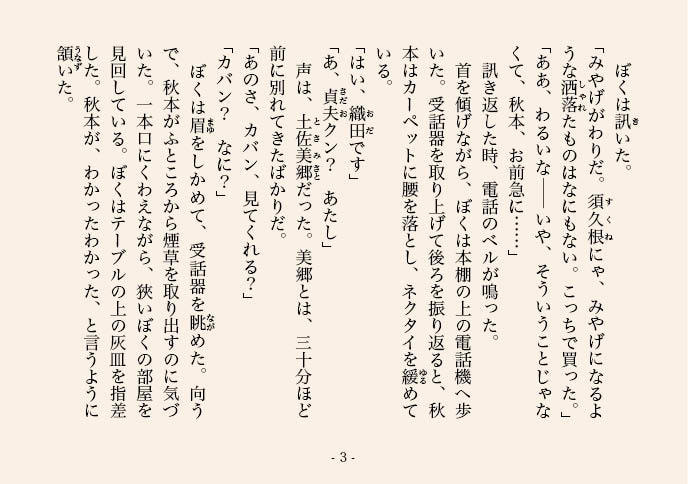 ぼくは訊いた。
「みやげがわりだ。須久根にゃ、みやげになるよ
うな洒落たものはなにもない。こっちで買った。」
「ああ、わるいな――いや、そういうことじゃな
くて、秋本、お前急に……」
訊き返した時、電話のベルが鳴った。
首を傾げながら、ぼくは本棚の上の電話機へ歩
いた。受話器を取り上げて後ろを振り返ると、秋
本はカーペットに腰を落とし、ネクタイを緩めて
いる。
「はい、織田です」
「あ、貞夫クン？　あたし」
声は、土佐美郷だった。美郷とは、三十分ほど
前に別れてきたばかりだ。
「あのさ、カバン、見てくれる？」
「カバン？　なに？」
ぼくは眉をしかめて、受話器を眺めた。向う
で、秋本がふところから煙草を取り出すのに気づ
いた。一本口にくわえながら、狭いぼくの部屋を
見回している。ぼくはテーブルの上の灰皿を指差
した。秋本が、わかったわかった、と言うように
頷いた。
- 3 -